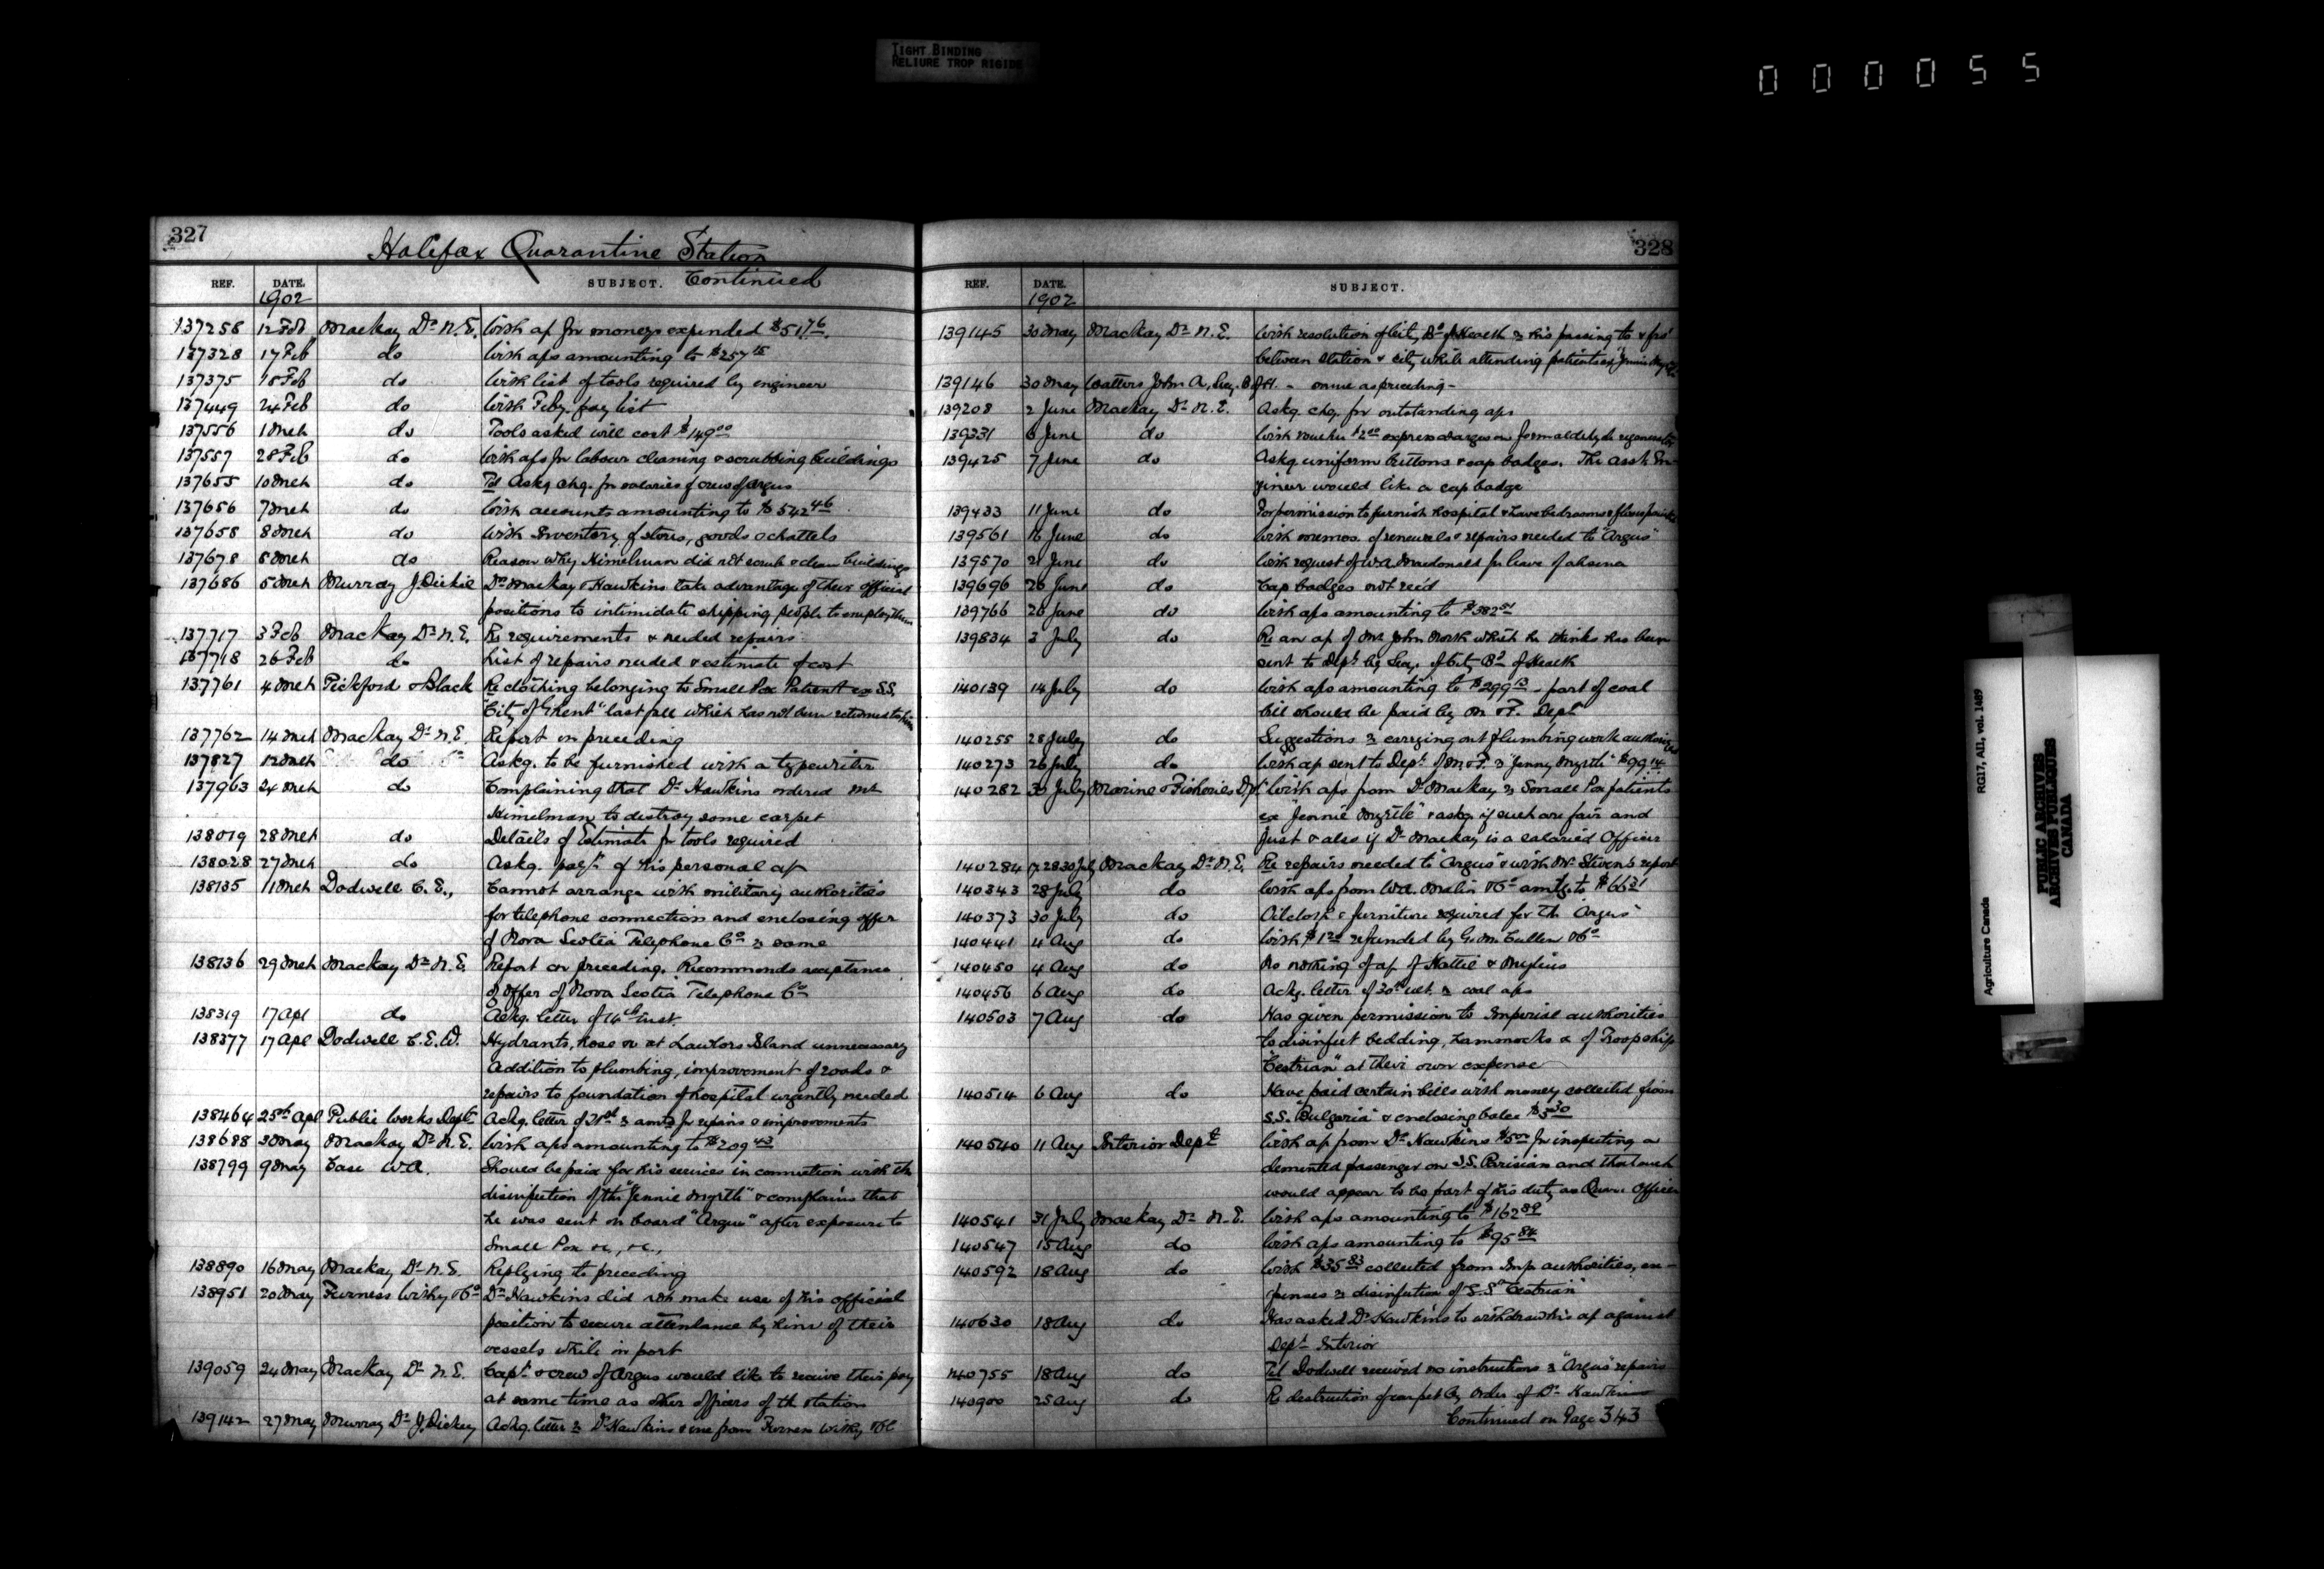 TIGHT BINDING
RELIURE TROP RIGIDE
000055
327
Halifax Quarantine Station
REF. DATE. SUBJECT. Continued
1902
137258 12 Feb Mackay Dr. N.E. With a/c for moneys expended $51.76
137328 17 Feb do With a/cs amounting to $257
137375 18 Feb do With list of tools required by engineer
137449 24 Feb do With Feby. pay list
137556 1 Mch do Tools asked will cost $149.00
137557 28 Feb do With a/cs for labour cleaning & scrubbing buildings
137655 10 Mch do Tel Askg chq. for salaries of crew of Argus
137656 7 Mch do With accounts amounting to $542.46
137658 8 Mch do With Inventory of stores, goods & chattels
137678 8 Mch do Reason why Himelman did not scrub & clean buildings
137686 5 Mch Murray J. Dickie Drs Mackay & Hawkins take advantage of their official
positions to intimidate shipping people to employ them
137717 3 Feb Mackay Dr. N.E. Re requirements & needed repairs
137718 26 Feb do List of repairs needed & estimate of cost
137761 4 Mch Pickford & Black Re clothing belonging to Small Pox Patient ex S.S.
"City of Ghent" last fall which has not been returned to him
137762 14 Mch Mackay Dr. N.E. Report on preceding
137827 12 Mch do Askg. to be furnished with a typewriter
137963 24 Mch do Complaining that Dr. Hawkins ordered Mr
Himelman to destroy some carpet
138019 28 Mch do Details of Estimate for tools required
138028 27 Mch do Askg. payt. of his personal a/c
138135 11 Mch Dodwell C.E., Cannot arrange with military authorities
for telephone connection and enclosing offer
of Nova Scotia Telephone Co. re same
138136 29 Mch Mackay Dr. N.E. Report on preceding. Recommends acceptance
of offer of Nova Scotia Telephone Co
138319 17 Apl do Ackg. letter of 16th inst.
138377 17 Apl Dodwell C.E.W. Hydrants, hose &c at Lawlors Island unnecessary
Addition to plumbing, improvement of roads &
repairs to foundation of hospital urgently needed
138464 25th Apl Public Works Dept Ackg. letter of re amts for repairs & improvements
138688 3 May Mackay Dr. N.E. With a/cs amounting to $209.43
138799 9 May Case W.A. Should be paid for his services in connection with the
disinfection of the "Jennie Myrtle" & complains that
he was sent on board "Argus" after exposure to
Small Pox &c., &c.,
138890 16 May Mackay Dr. N.E. Replying to preceding
138951 20 May Furness Withy & Co Dr. Hawkins did not make use of his official
position to secure attendance by him of their
vessels while in port
139059 24 May Mackay Dr. N.E. Capt. & crew of Argus would like to receive their pay
at same time as other officers of the station
139142 27 May Murray Dr. J. Dickey Ackg. letter re Dr Hawkins & one from Furness Withy & Co
328
REF. DATE. SUBJECT.
1902
139145 30 May Mackay Dr. N.E. With resolution of City Bd of Health re his passing to & fro
between station & city while attending patients ex "Jennie Myrtle"
139146 30 May Watters John A, Secy. B of H. - same as preceding -
139208 2 June Mackay Dr. N.E. Askg. chq. for outstanding a/cs
139331 6 June do With voucher $2.00 express charges on formaldehyde regenerator
139425 7 June do Askg uniform buttons & cap badges. The asst. En-
gineer would like a cap badge
139433 11 June do For permission to furnish hospital & have bedrooms & floors painted
139561 16 June do With memos. of renewals & repairs needed to "Argus"
139570 21 June do With request of W.A. Macdonald for leave of absence
139696 26 June do Cap badges not rec'd
139766 26 June do With a/cs amounting to $382.51
139834 3 July do Re an a/c of Mr John North which he thinks has been
sent to Dept. by Secy. of City Bd of Health
140139 14 July do With a/cs amounting to $299.13 - part of coal
bill should be paid by M & F. Dept
140255 28 July do Suggestions re carrying out plumbing work authorized
140273 26 July do With a/c sent to Dept. of M. & F. re "Jenny Myrtle" $99.14
140282 30 July Marine & Fisheries Dpt With a/cs from Dr Mackay re Small Pox patients
ex "Jennie Myrtle" & askg. if such are fair and
just & also if Dr. Mackay is a salaried Officer
140284 28 30 July Mackay Dr. N.E. Re repairs needed to "Argus" & with Mr Steven's report
140343 28 July do With a/cs from Wm. Malin & Co amtg. to $66.31
140373 30 July do Oilcloth & furniture required for the "Argus"
140441 4 Aug do With $1.20 refunded by G. M. Cullen & Co
140450 4 Aug do Knows nothing of a/c of Hattie & Mylius
140456 6 Aug do Ackg. letter of 30th ult. re coal a/cs
140503 7 Aug do Has given permission to Imperial authorities
to disinfect bedding, hammocks &c of Troopship
"Cestrian" at their own expense
140514 6 Aug do Have paid certain bills with money collected from
S.S. "Bulgaria" & enclosing balce $3.30
140540 11 Aug Interior Dept With a/c from Dr. Hawkins $5.00 for inspecting a
demented passenger on S.S. Parisian and that such
would appear to be part of his duty as Quar. Officer
140541 31 July Mackay Dr. N.E. With a/cs amounting to $162.89
140547 15 Aug do With a/cs amounting to $95.84
140592 18 Aug do With $35.83 collected from Imp. authorities, ex-
penses re disinfection of S.S. "Cestrian"
140630 18 Aug do Has asked Dr. Hawkins to withdraw his a/c against
Dept. Interior
140755 18 Aug do Tel Dodwell received no instructions re "Argus" repairs
140900 25 Aug do Re destruction of carpet by order of Dr. Hawkins
Continued on Page 343
Agriculture Canada RG17, AII, vol. 1489
PUBLIC ARCHIVES
ARCHIVES PUBLIQUES
CANADA